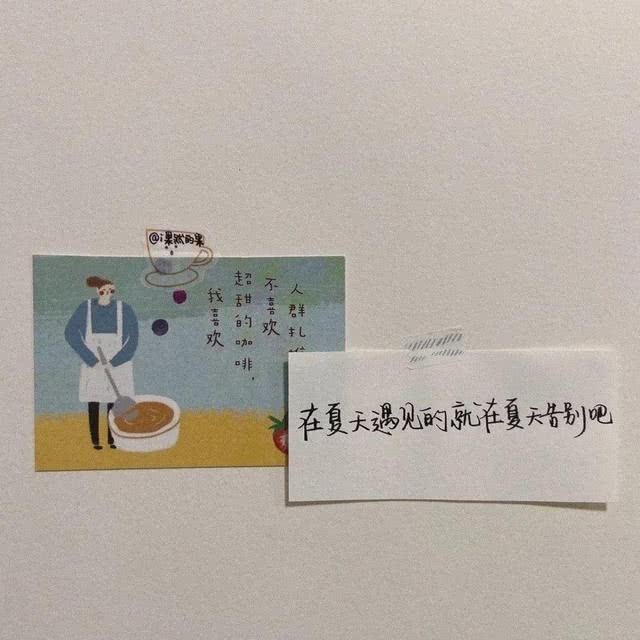 @i果然的果
我喜欢
超甜的咖啡,
不喜欢
人群扎
在夏天遇见的就在夏天告别吧